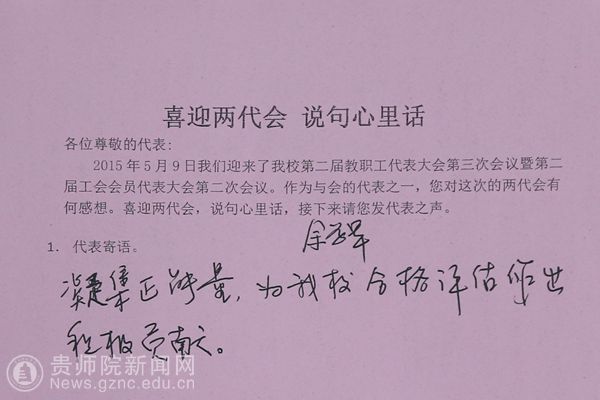 喜迎两代会 说句心里话
各位尊敬的代表:
2015年5月9日我们迎来了我校第二届教职工代表大会第三次会议暨第二
届工会会员代表大会第二次会议。作为与会的代表之一，您对这次的两代会有
何感想。喜迎两代会，说句心里话，接下来请您发代表之声。
1. 代表寄语。
凝集正能量，为我校合格评估作出
积极贡献。
贵师院新闻网
News.gznc.edu.cn